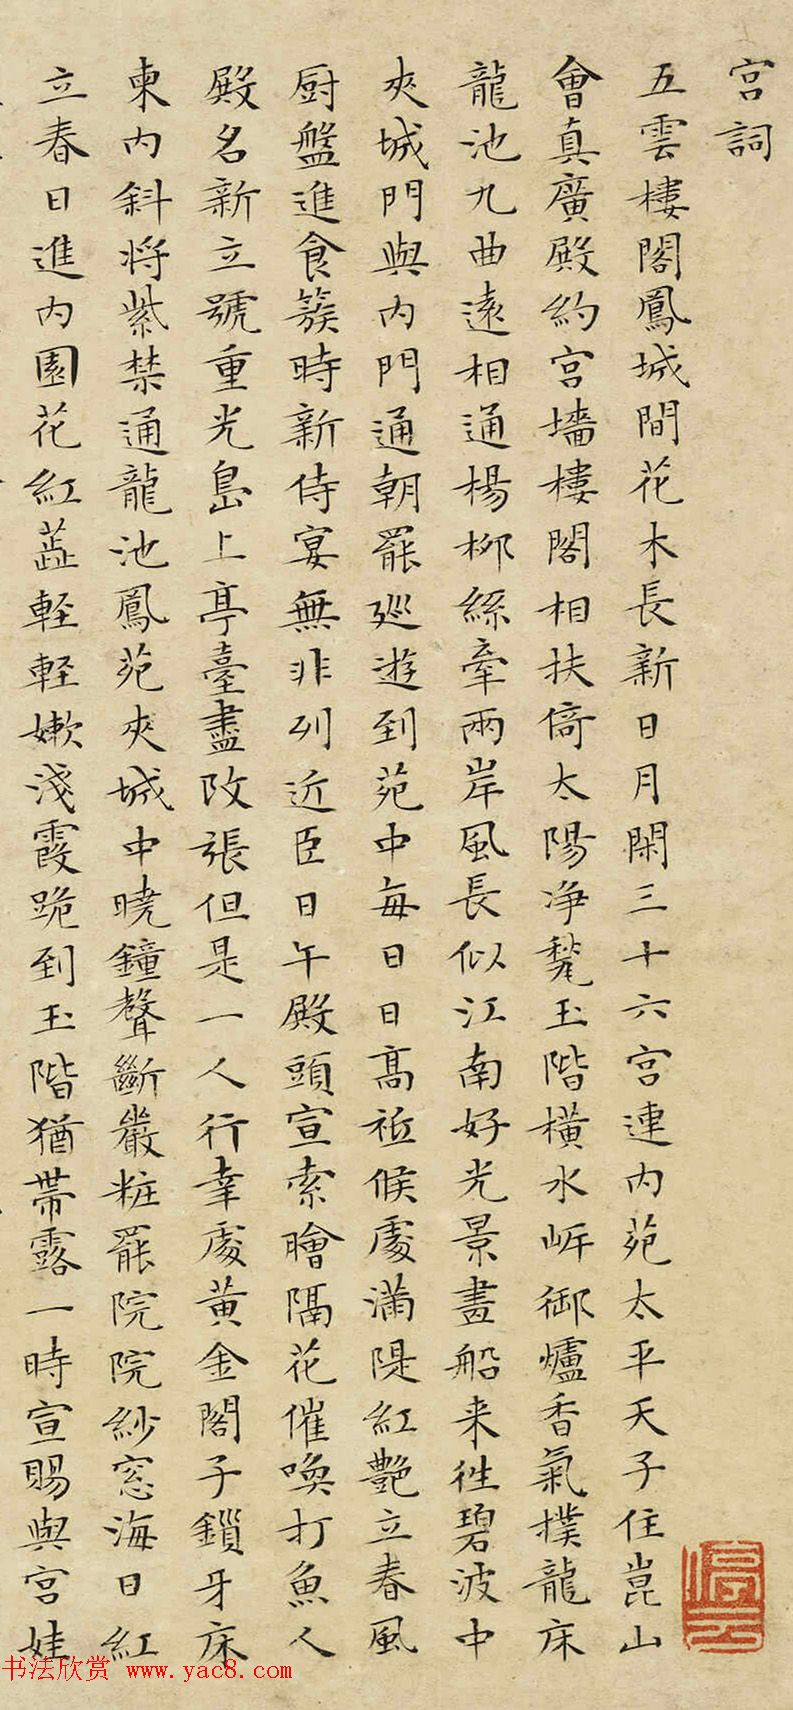 宮詞
五雲樓閣鳳城間花木長新日月閑三十六宮連內苑太平天子住崑山
會真廣殿約宮墻樓閣相扶倚太陽净甃玉階橫水岍御爐香氣撲龍床
龍池九曲遠相通楊柳絲牽兩岸風長似江南好光景畫船来徃碧波中
夾城門與內門通朝罷巡遊到苑中每日日高祗候處滿隄紅艷立春風
厨盤進食簇時新侍宴無非列近臣日午殿頭宣索膾隔花催喚打魚人
殿名新立號重光島上亭臺盡改張但是一人行幸處黃金閣子鎖牙床
東內斜将紫禁通龍池鳳苑夾城中曉鐘聲斷嚴粧罷院院紗窓海日紅
立春日進內園花紅蘂輕輕嫰淺霞跪到玉階猶帶露一時宣賜與宮娃
书法欣赏 www.yac8.com